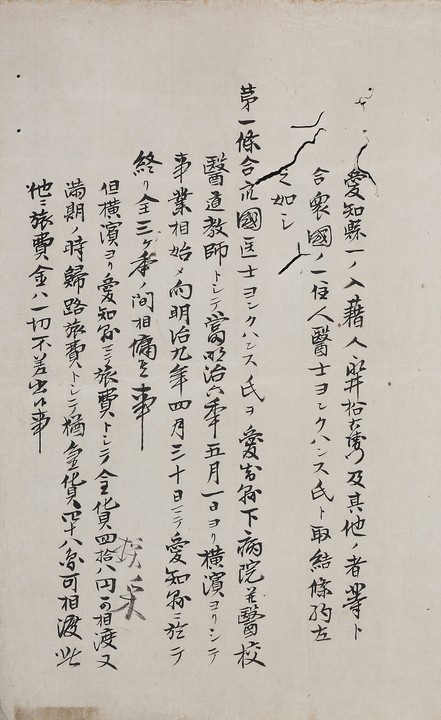 愛知縣一ノ入藉人永井松右衛門及其他ノ者等ト
合衆國ノ一住人醫士ヨンクハンス氏ト取結條約左
之如シ
第一條合衆國医士ヨンクハンス氏ヲ愛知縣下病院并醫校
醫道教師トシテ當明治六年五月一日ヨリ横濱ヨリシテ
事業相始メ向明治九年四月三十日ニテ愛知縣ニ於テ
終リ全三ケ年ノ間相傭フ事
但横濱ヨリ愛知縣ニテ旅費トシテ金貨四拾八円可相渡又
満期ノ時歸路旅費トシテ猶金貨四十八円可相渡此
他ニ旅費金ハ一切不差出候事